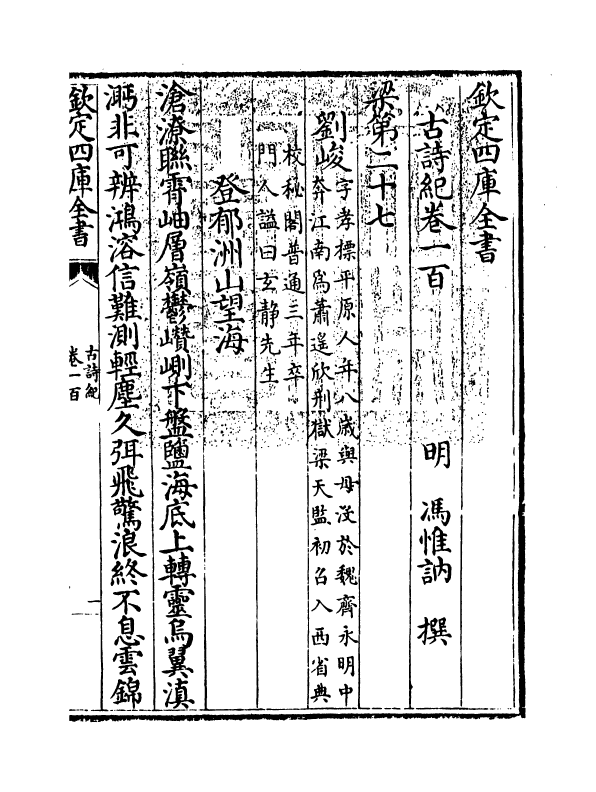 欽定四庫全書
古詩紀卷一百 明 馮惟訥 撰
梁第二十七
劉峻 字孝標平原人年八歲與母没於魏齊永明中
奔江南為蕭遥欣刑獄梁天監初召入西省典
校秘閣普通三年卒
門人謚曰玄靜先生
登郁洲山望海
滄潦聮霄岫層嶺鬱巑崱下盤鹽海底上轉靈烏翼滇
沔非可辨鴻溶信難測輕塵久弭飛驚浪終不息雲錦
欽定四庫全書
古詩紀
卷一百
一